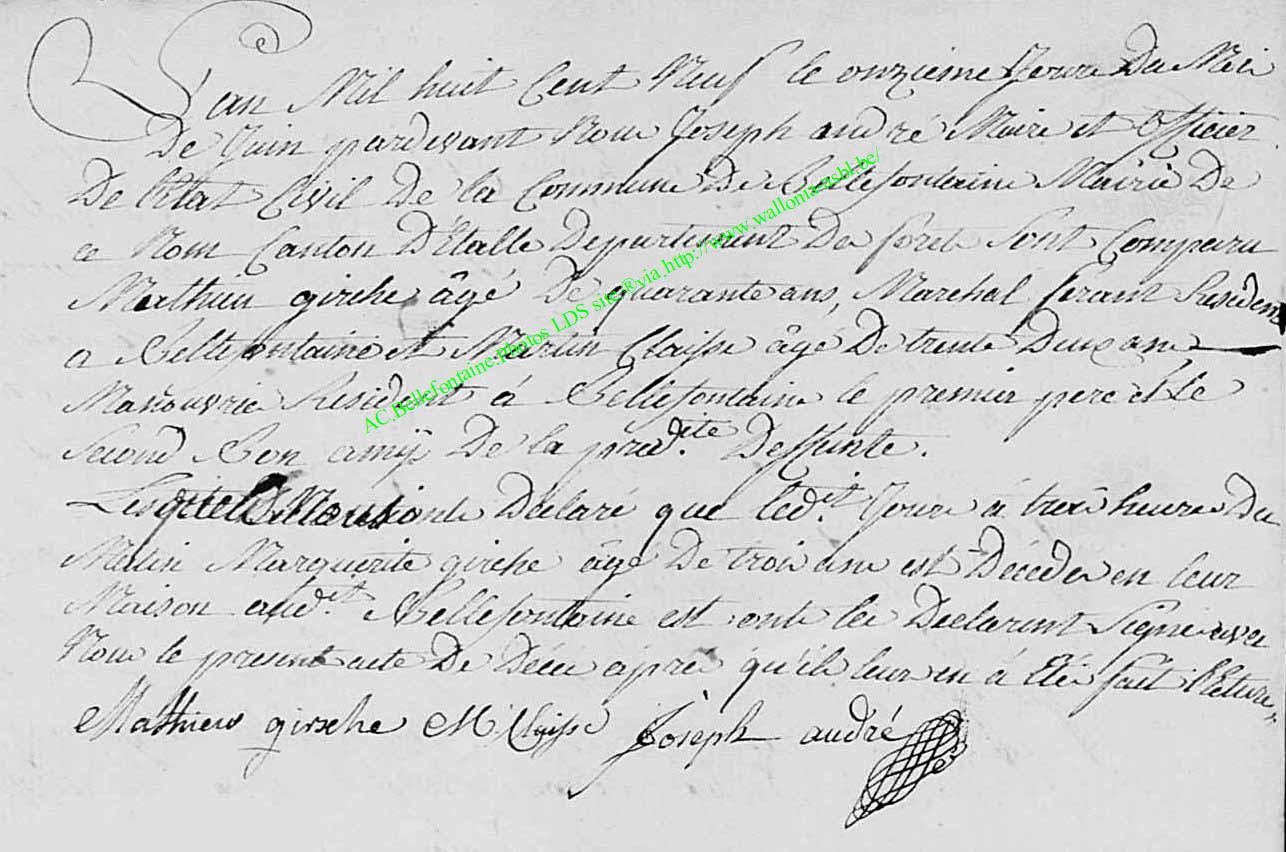 L'an Mil huit Cent Neuf le onzieme Jour Du Moi
De Juin pardevant Nous Joseph andré Maire et Officier
De l'état Civil De la Commune De Bellefontaine Mairie De
ce Nom Canton D'Étalle Departement Des foret Sont Comparu
Mathieu girche âgé De quarante ans, Marchal ferant Resident
a Bellefontaine et Martin Claisse âgé De trente Deux ans
Manouvrie Resident á Bellefontaine le premier pere et le
Second Bon amij De la préd.ite Deffunte.
Lesquels Nous onts Déclaré que led.it Jour á trois heures Du
Matin Marguerite girche âgé De trois ans est Décédée en leur
Maison aud.it Bellefontaine est onts les Declarent Signé avec
Nous le present acte De Décé aprè qu'il leur en á Été fait lecture,
Mathieu girsche M Claisse Joseph andré
AC.Bellefontaine.Photos LDS sites®via.http://www.wallonia-asbl.be/